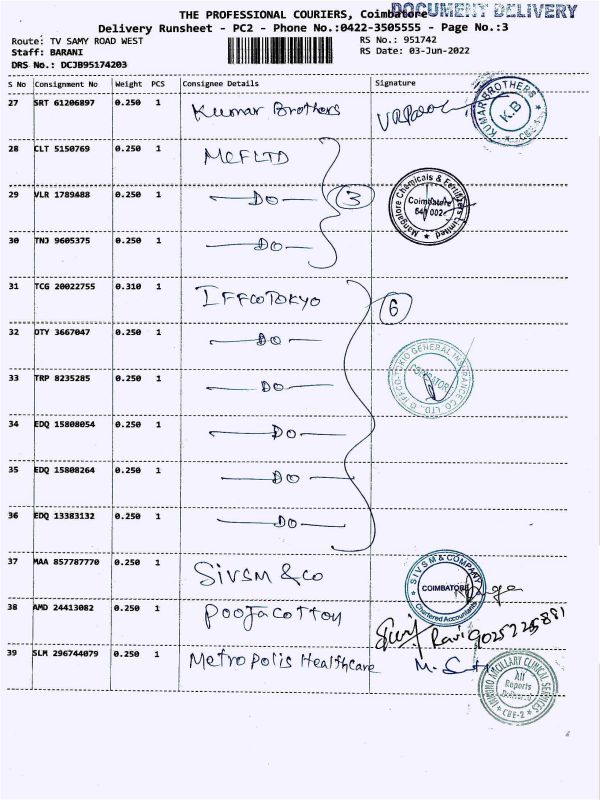 DOCUMENT DELIVERY
THE PROFESSIONAL COURIERS, Coimbatore
Delivery Runsheet - PC2 - Phone No.:0422-3505555 - Page No.:3
Route: TV SAMY ROAD WEST RS No.: 951742
Staff: BARANI RS Date: 03-Jun-2022
DRS No.: DCJB95174203
S No Consignment No Weight PCS Consignee Details Signature
27 SRT 61206897 0.250 1 Kumar Brothers
KUMAR BROTHERS K.B CBE-1
28 CLT 5150769 0.250 1 MCFLTD
29 VLR 1789488 0.250 1 DO 3
Mangalore Chemicals & Fertilizers Limited Coimbatore 641 002
30 TNJ 9605375 0.250 1 DO
31 TCG 20022755 0.310 1 IFFCOTOKYO 6
32 OTY 3667047 0.250 1 DO
33 TRP 8235285 0.250 1 DO
IFFCO-TOKIO GENERAL INSURANCE CO. LTD. COIMBATORE
34 EDQ 15808054 0.250 1 DO
35 EDQ 15808264 0.250 1 DO
36 EDQ 13383132 0.250 1 DO
37 MAA 857787770 0.250 1 SIVSM & CO
SIVSM & COMPANY COIMBATORE Chartered Accountants
38 AMD 24413082 0.250 1 Pooja cotton
Ravi
39 SLM 296744079 0.250 1 Metropolis Healthcare
ANCILLARY CLINICAL SERVICES All Reports Delivered CBE-2